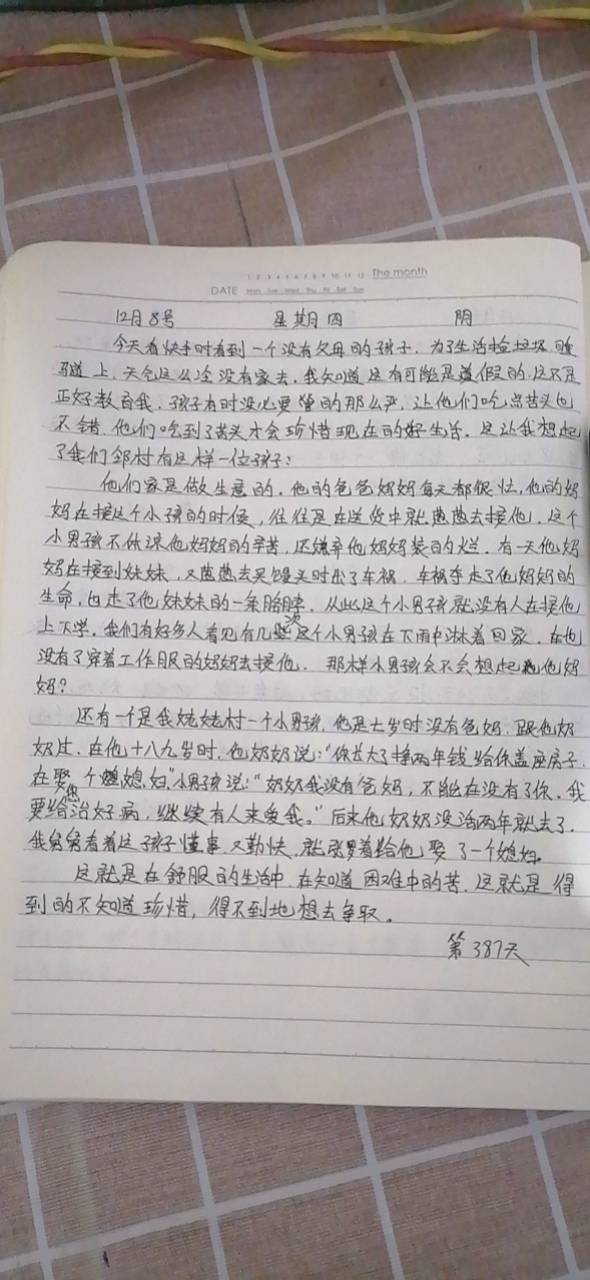 1 2 3 4 5 6 7 8 9 10 11 12 The month
DATE Mon Tue Wed Thu Fri Sat Sun
12月8号 星期四 阴
今天看快手时看到一个没有父母的孩子，为了生活捡垃圾睡
马道上，天气这么冷没有家去，我知道这有可能是假的，这不是
正好教育我，孩子有时没必要管的那么严，让他们吃点苦头也
不错，他们吃到了苦头才会珍惜现在的好生活。这让我想起
了我们邻村有这样一位孩子：
他们家是做生意的，他的爸爸妈妈每天都很忙，他的妈
妈在接这个小孩的时侯，往往是在送货中就急急去接他，这个
小男孩不体谅他妈妈的辛苦，还嫌弃他妈妈装的烂，有一天他妈
妈在接到妹妹，又急急去买馒头时出了车祸，车祸夺走了他妈妈的
生命，也走了他妹妹的一条胳膊，从此这个小男孩就没有人在接他
上下学，我们有好多人看见有几次这个小男孩在下雨中淋着回家，在也
没有了穿着工作服的妈妈去接他，那样小男孩会不会想起他妈
妈？
还有一个是我姥姥村一个小男孩，他是七岁时没有爸妈，跟他奶
奶过，在他十八九岁时，他奶奶说：“你长大了挣两年钱给你盖座房子，
在娶个媳妇“小男孩说：“奶奶我没有爸妈，不能在没有了你，我
要给您治好病，继续有人来爱我。”后来他奶奶没活两年就去了，
我舅舅看着这孩子懂事又勤快，就张罗着给他娶了一个媳妇。
这就是在舒服的生活中，在知道困难中的苦，这就是得
到的不知道珍惜，得不到地想去争取。
第387天